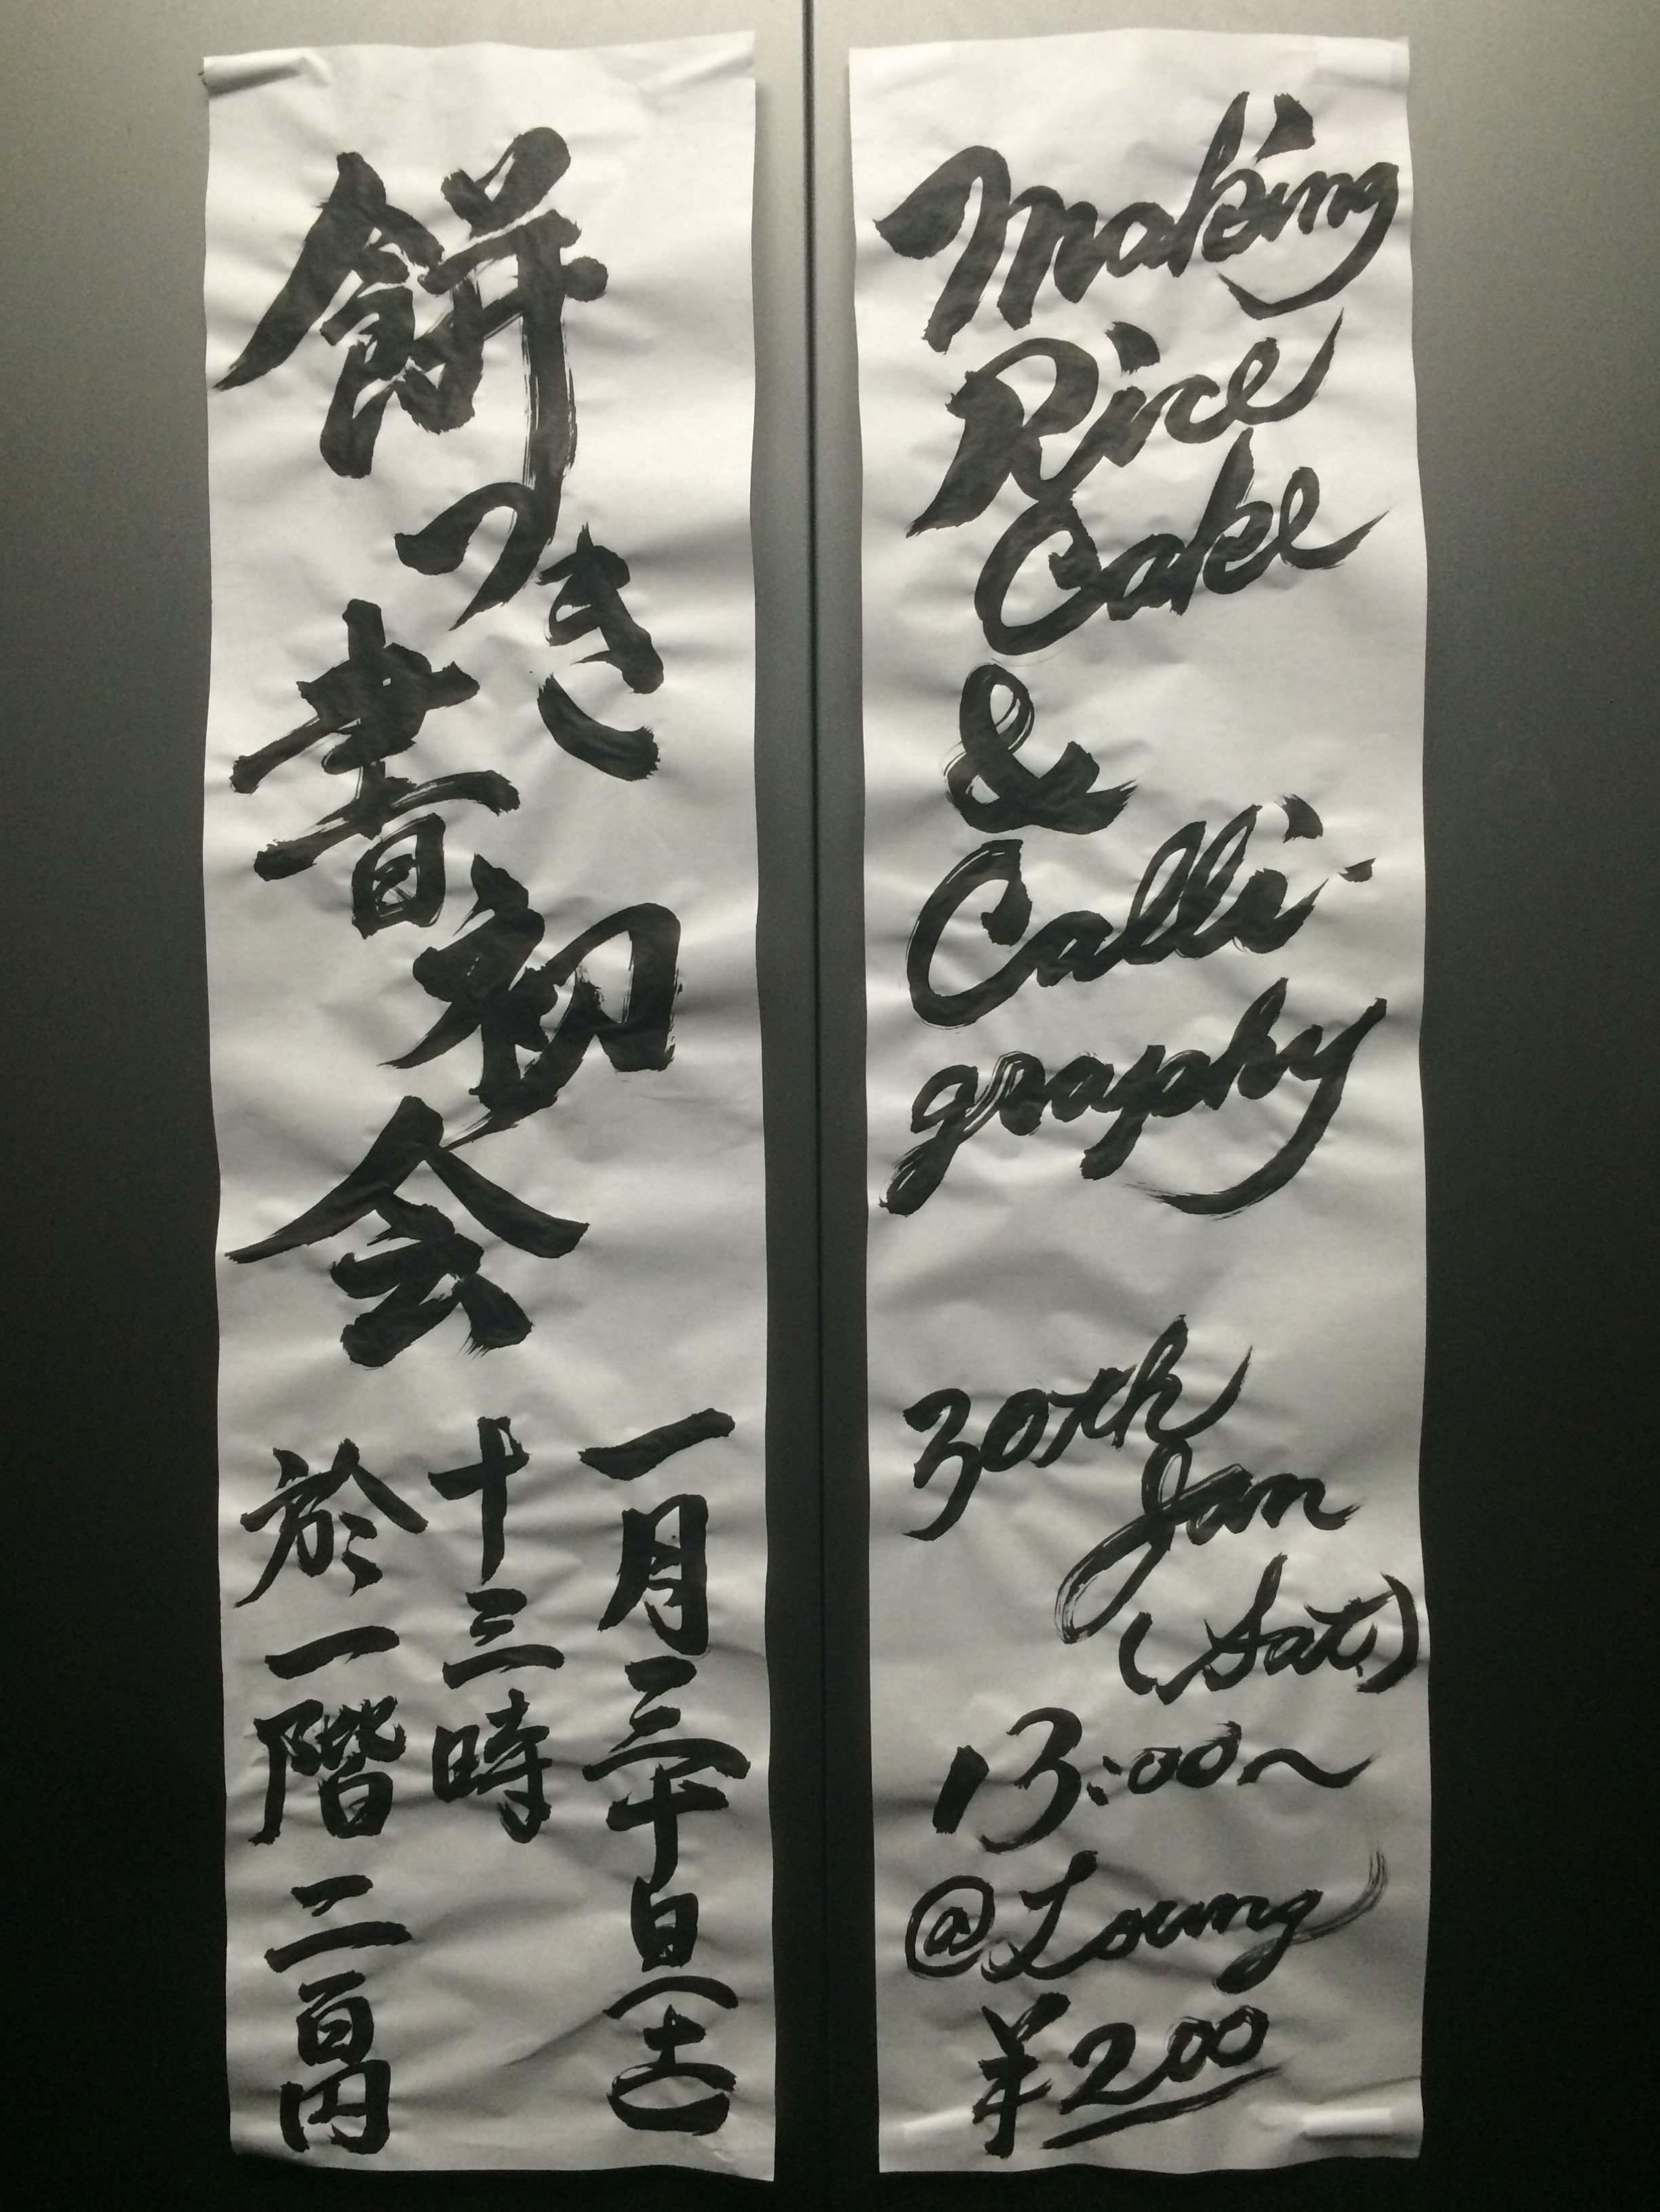 餅つき
書初
会
一月三十日(土)
十三時
於一階 二百円
Making
Rice
Cake
&
Calli-
graphy
30th
Jan
(Sat)
13:00～
@Loung
¥200